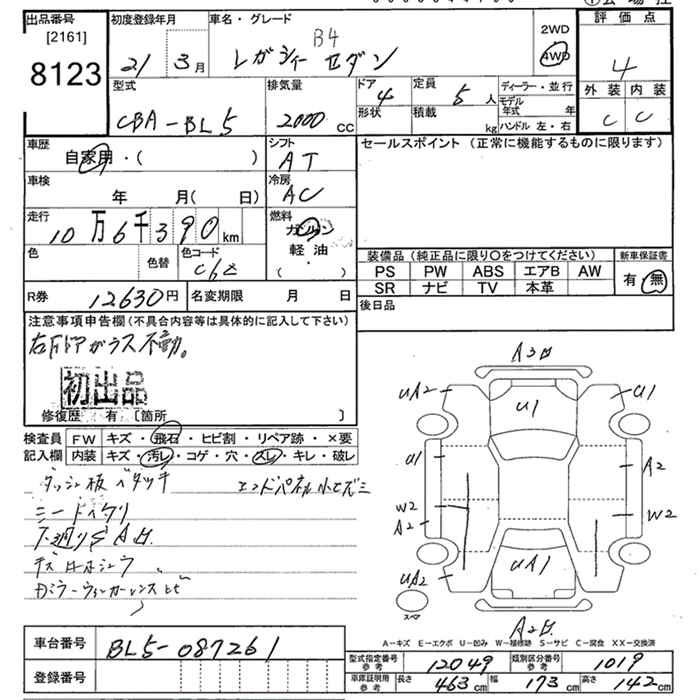 出品番号
[2161]
8123
初度登録年月
21 3月
車名・グレード
B4
レガシィ セダン
2WD
4WD
評価点
4
外装 内装
C C
型式
CBA-BL5
排気量
2000 cc
ドア
4
形状
定員
5人
積載
kg
ディーラー・並行
モデル年式 年
ハンドル 左・右
車歴
自家用・( )
シフト
AT
セールスポイント (正常に機能するものに限ります)
車検
年 月( 日)
冷房
AC
走行
10万6千390km
燃料
ガソリン
軽油・
( )
色
色替
色コード
C6Z
装備品 (純正品に限り○をつけてください)
PS PW ABS エアB AW
SR ナビ TV 本革
新車保証書
有・無
R券
12630円
名変期限 月 日
後日品
注意事項申告欄 (不具合内容等は具体的に記入して下さい)
右ガラス不動。
初出品
修復歴 有 〔箇所 〕
検査員
記入欄
FW キズ・飛石・ヒビ割・リペア跡・×要
内装 キズ・汚レ・コゲ・穴・スレ・キレ・破レ
ダッシュ板ベタツキ
エンドパネル小ヒズミ
A3
UA2
U1
U1
U1
A2
W2
A2
W2
UA2
UA1
スペア
A2
A-キズ E-エクボ U-凹み W-補修跡 S-サビ C-腐食 XX-交換済
車台番号
BL5-087261
登録番号
型式指定番号
参考
12049
類別区分番号
参考
1019
車庫証明用
参考
長さ 463cm 幅 173cm 高さ 142cm